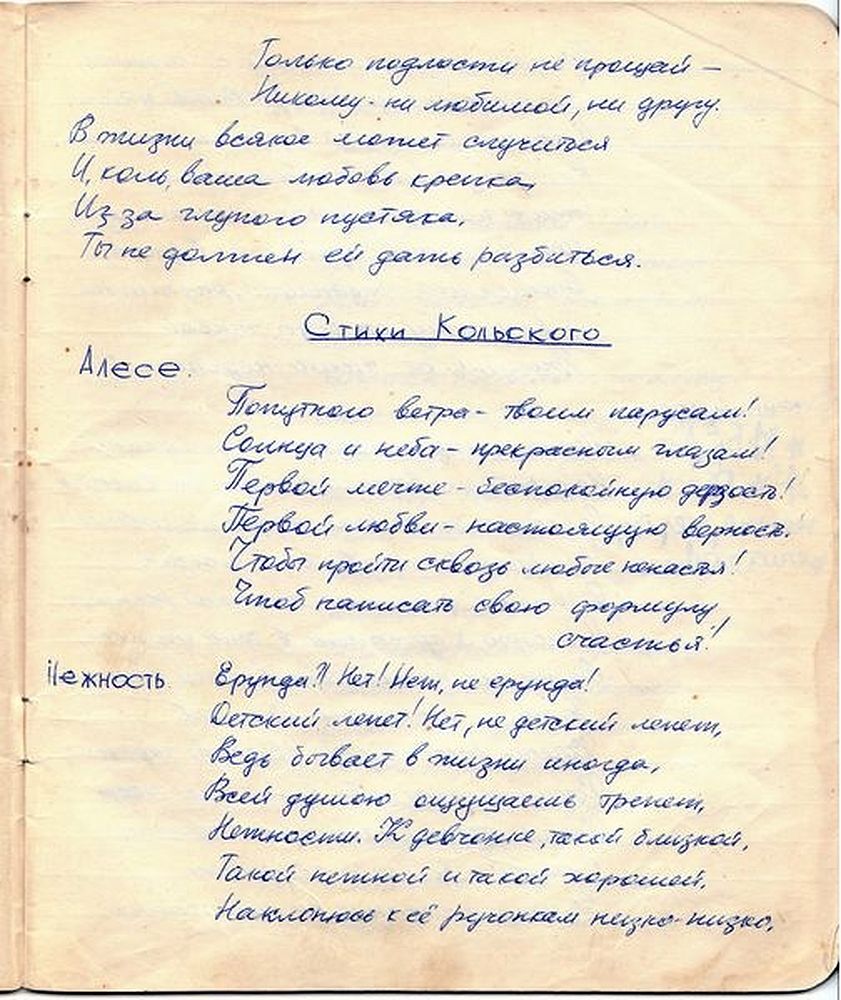 Только подлости не прощай –
Никому- ни любимой, ни другу.
В жизни всякое может случиться
И, коль, ваша любовь крепка,
Из за глупого пустяка,
Ты не должен ей дать разбиться.
Стихи Кольского
Алесе.
Попутного ветра- твоим парусам!
Солнца и неба- прекрасным глазам!
Первой мечте - беспокойную дерзость!
Первой любви- настоящую верность!
Чтобы пройти сквозь любые ненастья!
Чтоб написать свою формулу
счастья!
Нежность. Ерунда?! Нет! Нет, не ерунда!
Детский лепет! Нет, не детский лепет,
Ведь бывает в жизни иногда,
Всей душою ощущаешь трепет,
Нежности. К девчонке, такой близкой,
Такой нежной и такой хорошей,
Наклонюсь к её ручонкам низко-низко,